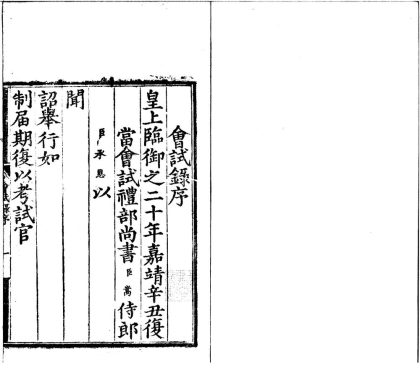 會試錄序
皇上臨御之二十年嘉靖辛丑復
當會試禮部尚書臣嵩侍郎
臣承恩以
聞
詔舉行如
制届期復以考試官